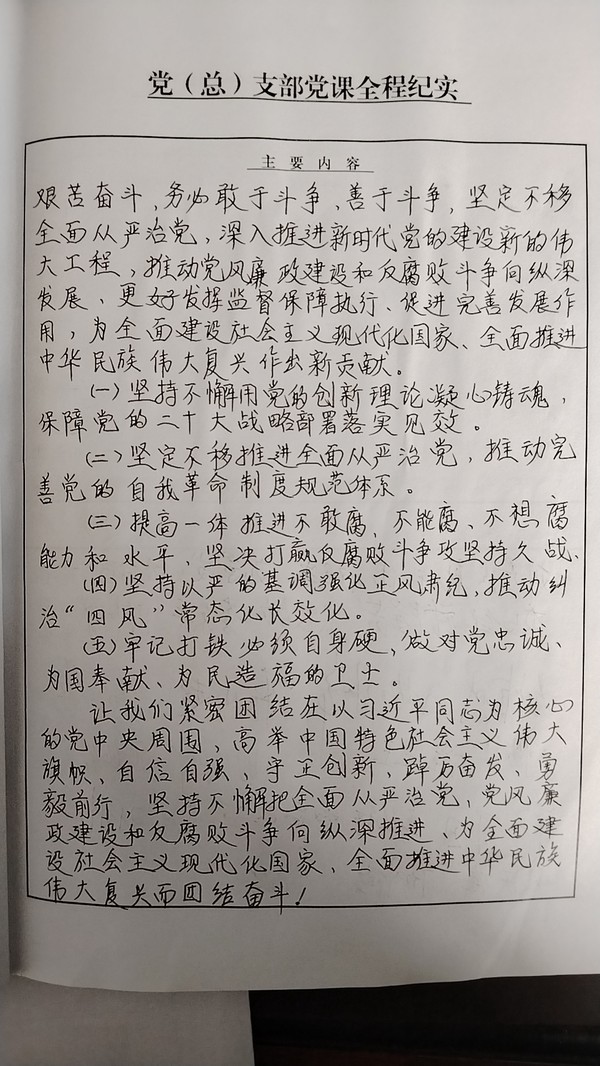 党（总）支部党课全程纪实
主要内容
艰苦奋斗，务必敢于斗争、善于斗争，坚定不移
全面从严治党，深入推进新时代党的建设新的伟
大工程，推动党风廉政建设和反腐败斗争向纵深
发展、更好发挥监督保障执行、促进完善发展作
用，为全面建设社会主义现代化国家、全面推进
中华民族伟大复兴作出新贡献。
（一）坚持不懈用党的创新理论凝心铸魂，
保障党的二十大战略部署落实见效。
（二）坚定不移推进全面从严治党，推动完
善党的自我革命制度规范体系。
（三）提高一体推进不敢腐、不能腐、不想腐
能力和水平，坚决打赢反腐败斗争攻坚持久战、
（四）坚持以严的基调强化正风肃纪，推动纠
治“四风”常态化长效化。
（五）牢记打铁必须自身硬、做对党忠诚、
为国奉献、为民造福的卫士。
让我们紧密团结在以习近平同志为核心
的党中央周围，高举中国特色社会主义伟大
旗帜、自信自强、守正创新、踔厉奋发、勇
毅前行，坚持不懈把全面从严治党、党风廉
政建设和反腐败斗争向纵深推进、为全面建
设社会主义现代化国家、全面推进中华民族
伟大复兴而团结奋斗！